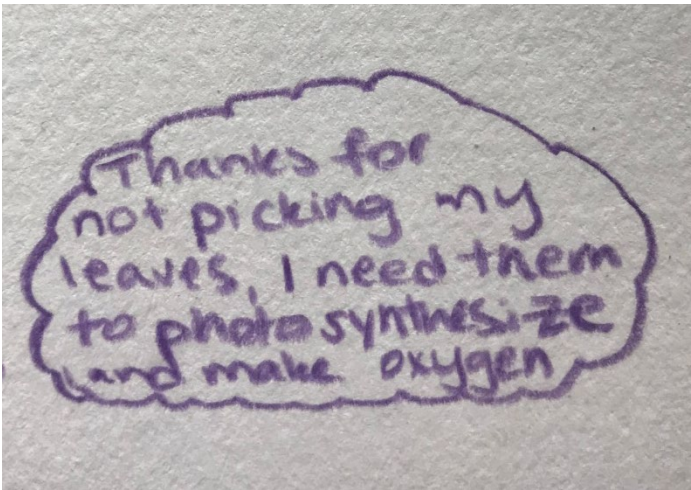 Thanks for
not picking my
leaves, I need them
to photosynthesize
and make oxygen